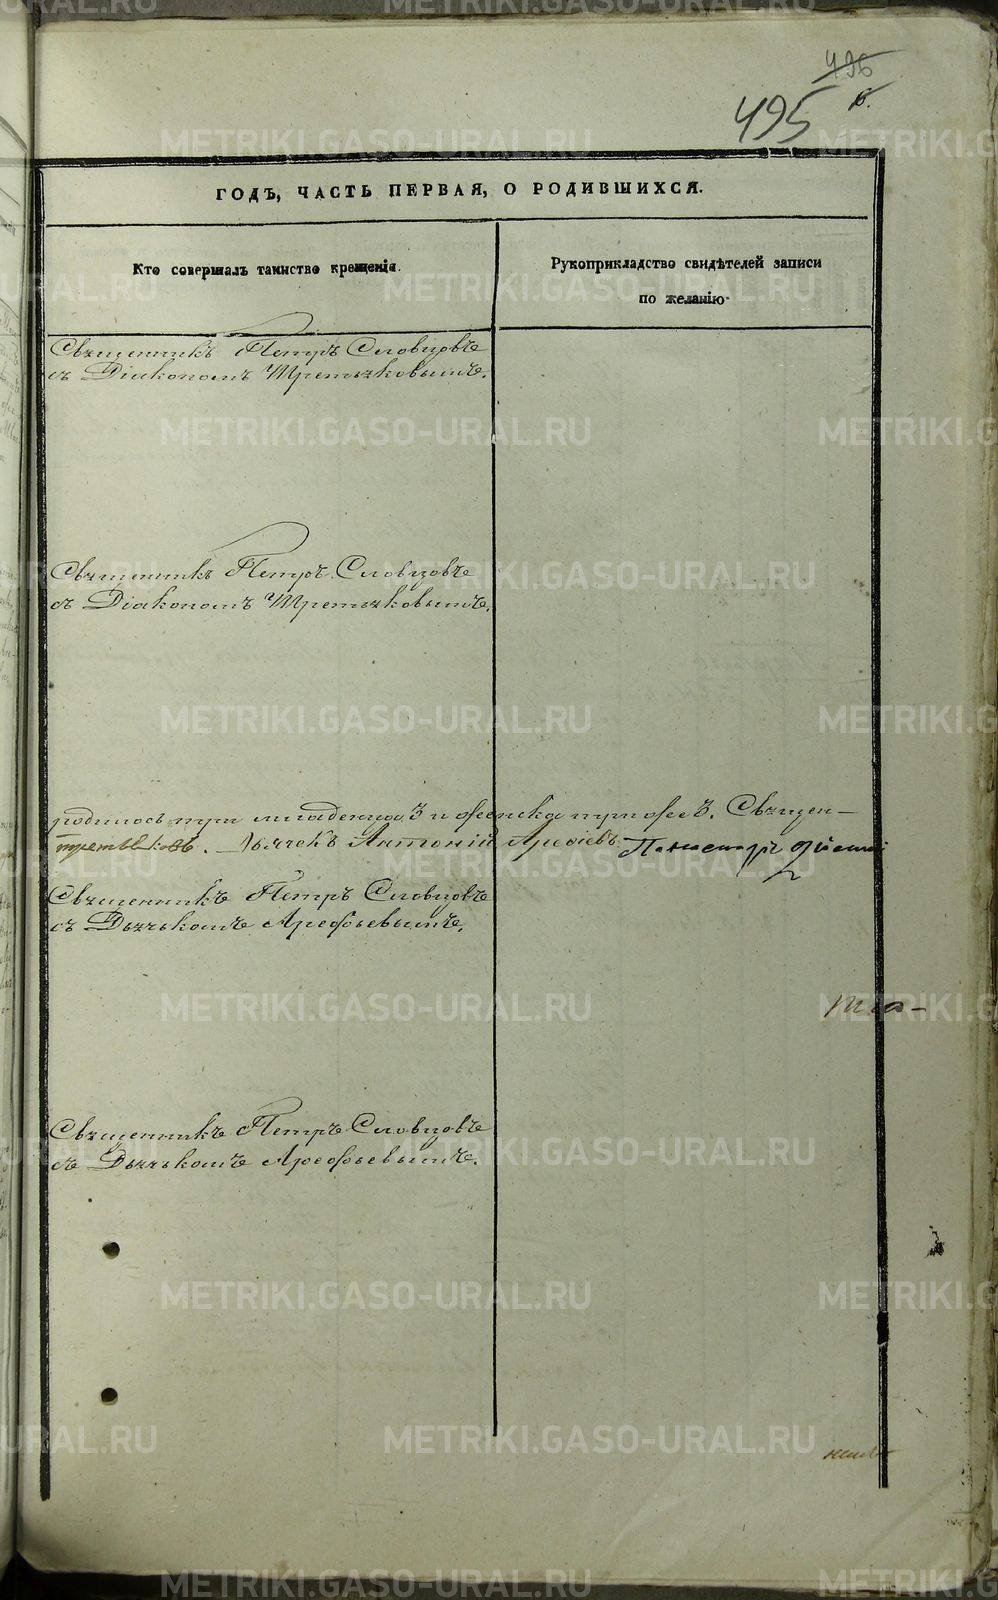 495
ГОДЪ, ЧАСТЬ ПЕРВАЯ, О РОДИВШИХСЯ.
Кто совершалъ таинство крещенія.
Рукоприкладство свидѣтелей записи
по желанію
Священникъ Петръ Словцовъ
съ Діакономъ Третьяковымъ.
Священникъ Петръ Словцовъ
съ Діакономъ Третьяковымъ.
родилось три младенца 3 и женска три же 3. Священ-
Третьяковъ. Дьячекъ Антоній Арефіевъ
Священникъ Петръ Словцовъ
съ Дьячькомъ Арефьевымъ.
Священникъ Петръ Словцовъ
съ Дьячькомъ Арефьевымъ.
METRIKI.GASO-URAL.RU